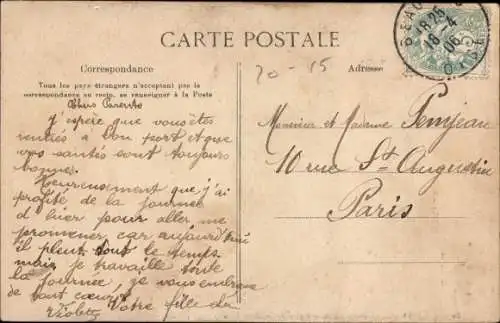 CARTE POSTALE
Correspondance
Tous les pays étrangers n'acceptent pas la
correspondance au recto, se renseigner à la Poste
Chers Parents
J'espère que vous êtes
rentrés à bon port et que
vos santés sont toujours
bonnes.
Heureusement que j'ai
profité de la journée
d'hier pour aller me
promener car aujourd'hui
il pleut tout le temps
mais je travaille toute
la journée, je vous embrasse
de tout cœur
Votre fille
20-15
Adresse
Monsieur et Madame Penjean
10 rue St Augustin
Paris
18 25
16-4
06